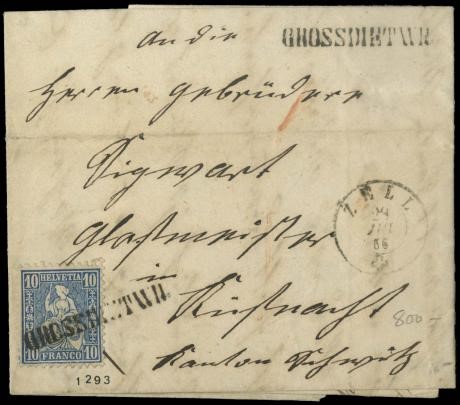 GROSSDIETWR.
An die
Herren Gebrüdere
Sigwart
Glastmeister
in
Küßnacht
Kanton Schwÿtz
ZELL
66
800-
10 HELVETIA 10
10 FRANCO 10
GROSSDIETWR.
1293